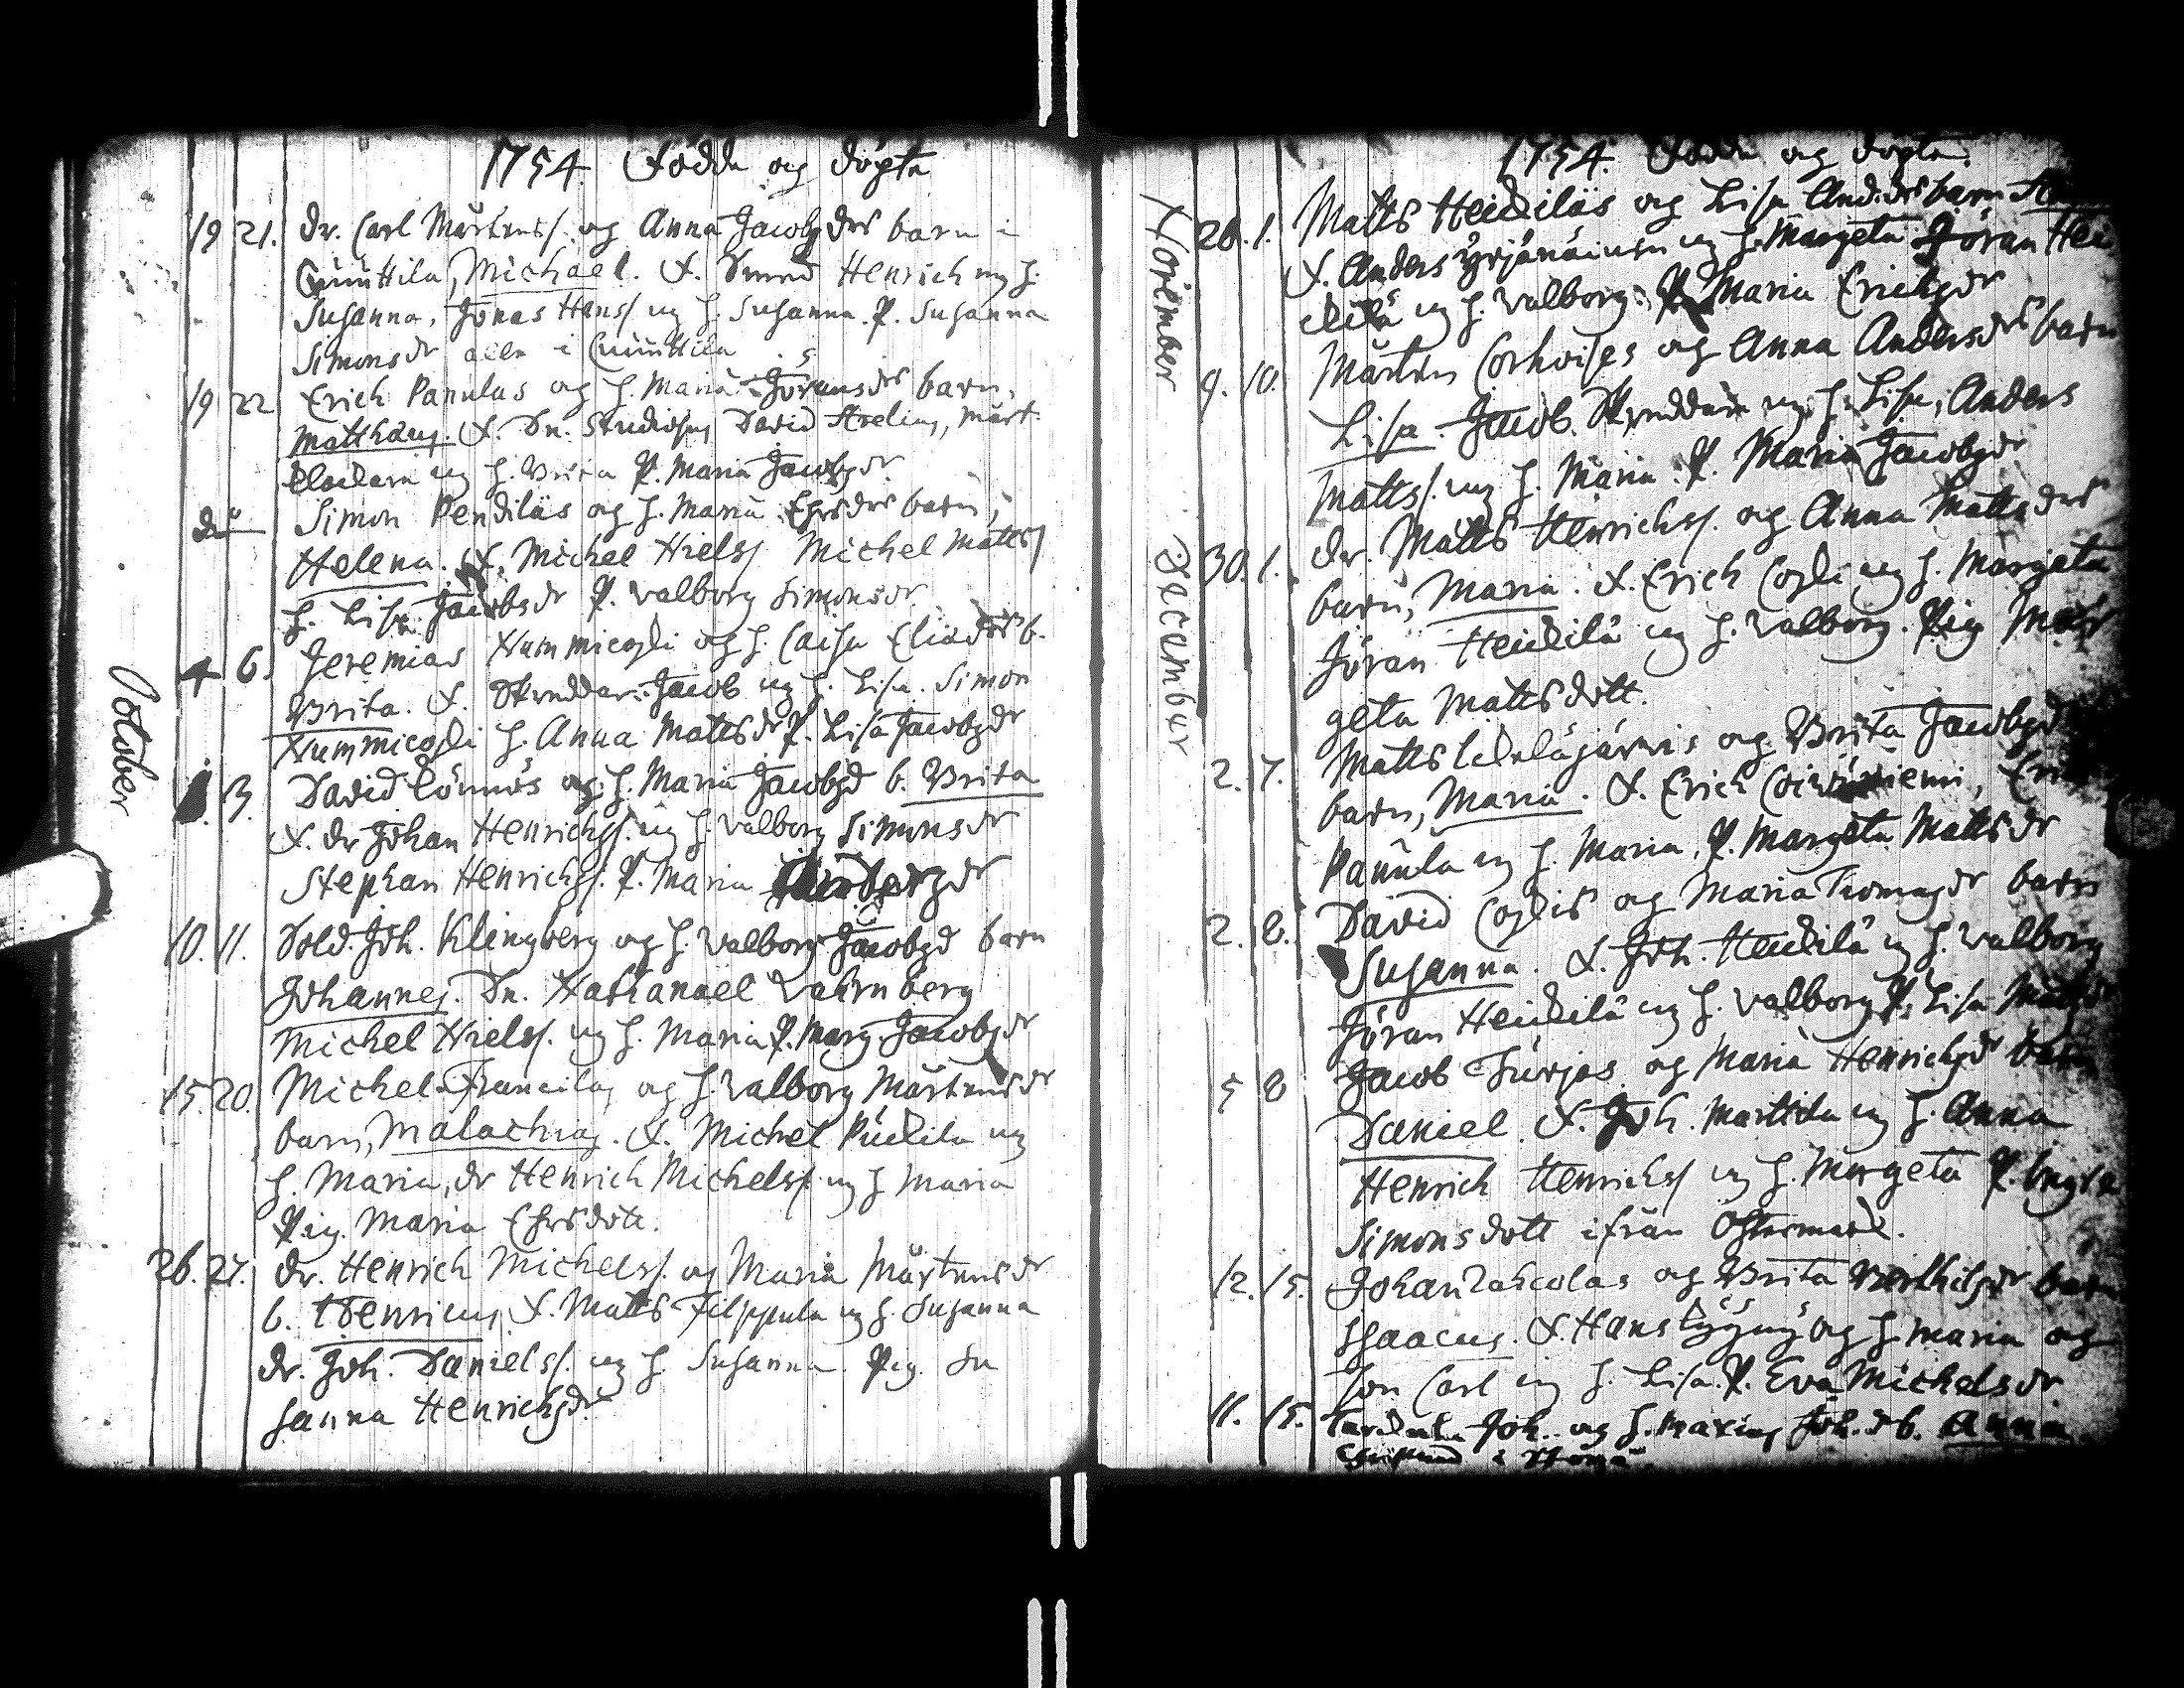 1754. Födde og döpte
19 21. dr. Carl Mårtenss. og Anna Jacobsdrs barn i
Michael. F. Smed Henrich og h.
Susanna, Jonas Hanss og h. Susanna. P. Susanna
Simonsdr alla i
19 22 Erich Panulas og h. Maria Jöransdrs barn,
Matthæus. F. Dn. Studiosus David, Mårt.
og h. Brita P. Maria Jacobsdr
Simon Pendiläs og h. Maria Ersdrs barn,
Helena. F. Michel Nielss Michel Mattss
h. Lisa Jacobsdr P. Valborg Simonsdr
October
4 6. Jeremias Nummicoski og h. Caisa Eliædrs b.
Brita. F. Skreddar. Jacob og h. Lisa. Simon
Nummicoski h. Anna Mattsdr P. Lisa Jacobsdr
13. David Lönnös og h. Maria Jacobsd b. Brita
F. dr Johan Henrichss. og h. Valborg Simonsdr
Stephan Henrichss. P. Maria
10. 11. Sold. Joh. Klingberg og h. Valborg Jacobsd barn
Johannes. Dn. Nathanael
Michel Nielss. og h. Maria P. Marg. Jacobsdr
15. 20. Michel Francilas og h. Valborg Mårtensdr
barn, Malachias. F. Michel Pudila og
h. Maria, dr Henrich Michelss. og h Maria
Pig. Maria Ersdott.
26. 27. dr. Henrich Michelss. og Maria Mårtensdr
b. Henricus F. Matts Filppula og h. Susanna
dr. Joh. Danielss. og h. Susanna. Pig. Su
sanna Henrichsdr.
1754. Födde og döpte.
November
28. 1. Matts Heickiläs og Lisa And.drs barn
F. Anders Yrjänäinen og h. Margeta Jöran Hei
ckilä og h. Valborg. P. Maria Erichsdr
9. 10. Mårten Corhoises og Anna Andersdrs barn
Lisa. Jacob Skreddare og h. Lisa, Anders
Mattss. og h. Maria. P. Maria Jacobsdr
December
30. 1. dr. Matts Henrichss. og Anna Mattsdrs
barn, Maria. F. Erich Coski og h. Margeta
Jöran Heickilä og h. Valborg. Pig Mar
geta Mattsdott.
2. 7. Matts og Brita Jacobsd
barn, Maria. F. Erich
Panula og h. Maria, P. Margeta Mattsdr
2. 8. David Coskis og Maria Thomasdr barn
Susanna. F. Joh. Heickilä og h. Valborg
Jöran Heickilä og h. Valborg P. Lisa
5 8 Jacob Turjas og Maria Henrichsdr barn
Daniel. F. Joh. Marttila og h. Anna
Henrich Henrichss og h. Margeta P.
Simonsdott ifrån Östermark.
12. 15. Johan og Brita Berthilsdr barn
Isaacus. F. Hans og h. Maria og
son Carl og h. Lisa. P. Eva Michelsdr
11. 15. Joh. og h. Joh. d b. Anna